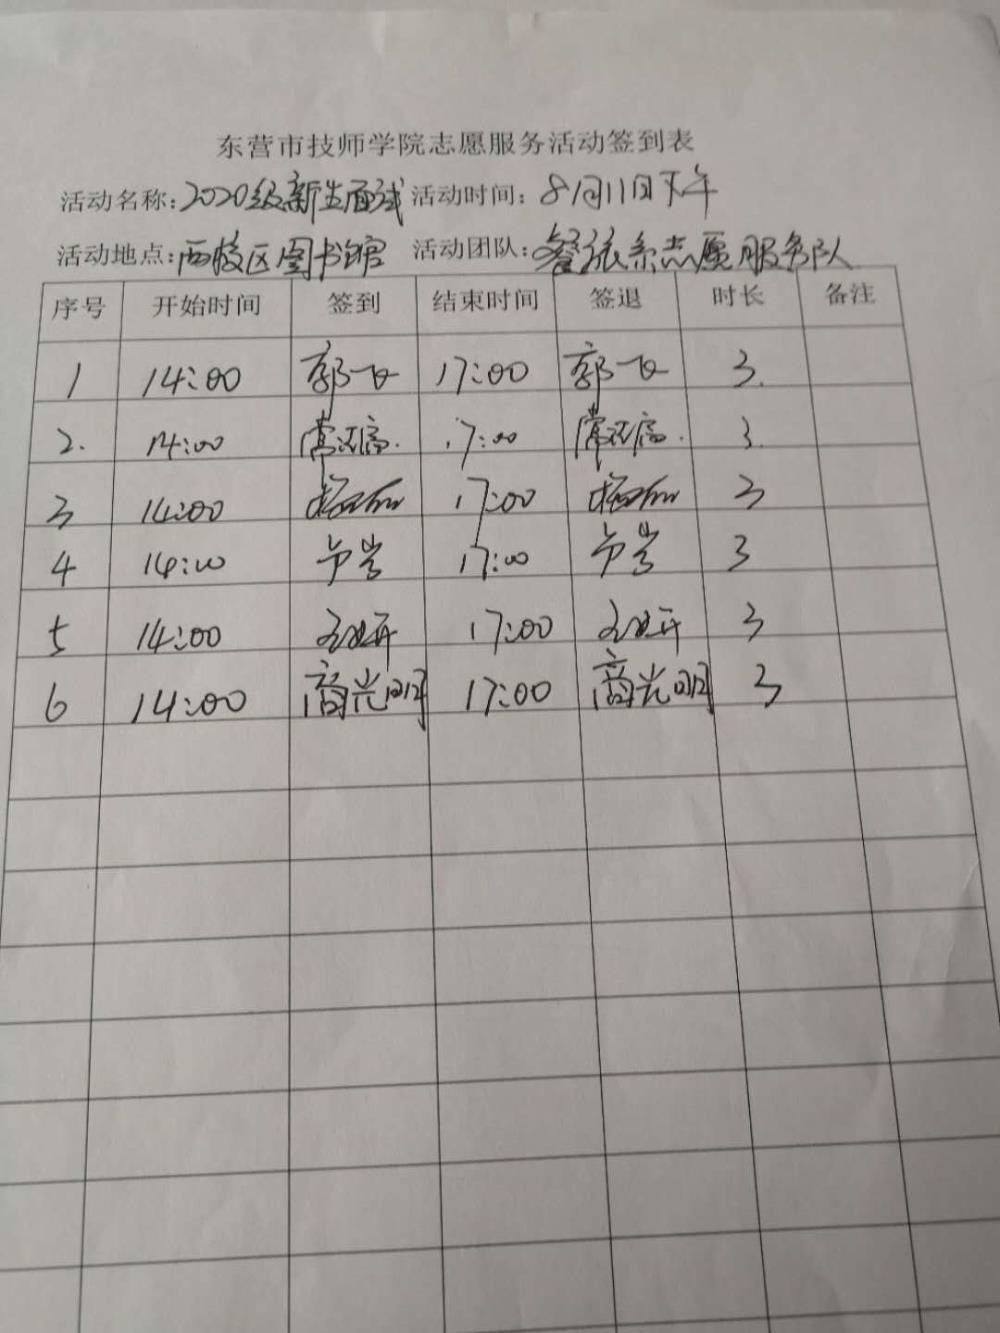 东营市技师学院志愿服务活动签到表
活动名称：2020级新生面试 活动时间：8月11日下午
活动地点：西校区图书馆 活动团队：餐旅系志愿服务队
序号 开始时间 签到 结束时间 签退 时长 备注
1 14:00 郭一 17:00 郭一 3.
2. 14:00 常 17:00 常 3.
3 14:00 17:00 3
4 14:00 17:00 3
5 14:00 17:00 3
6 14:00 商光明 17:00 商光明 3